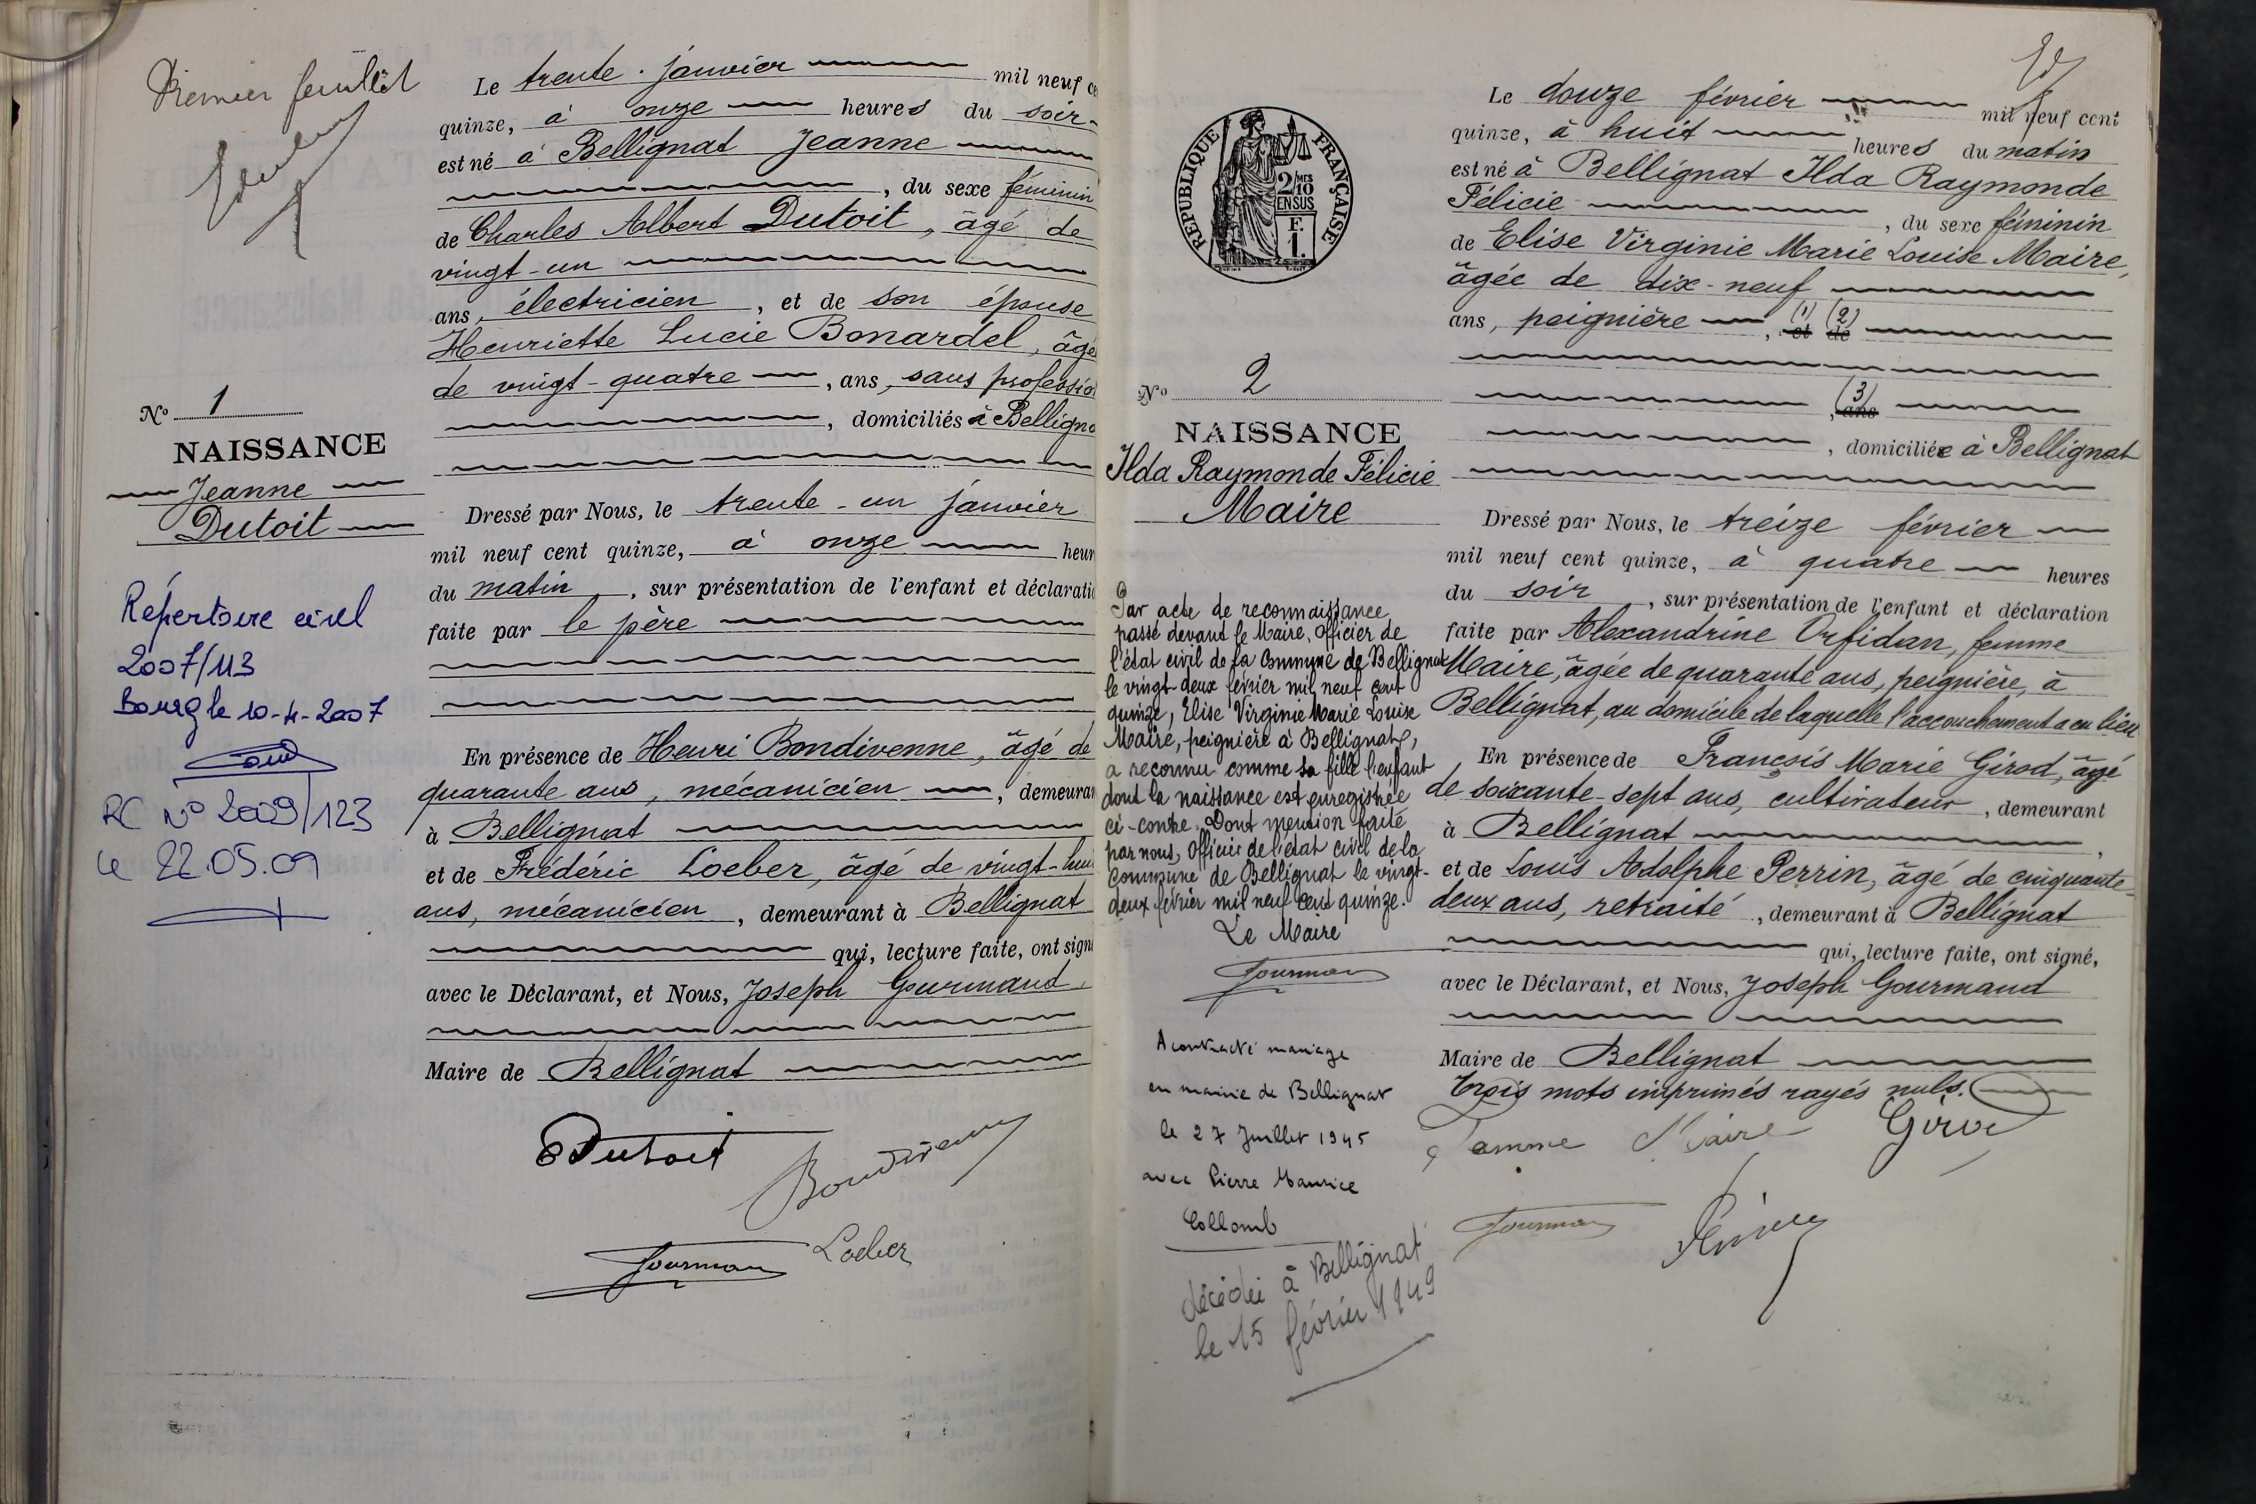 Premier feuillet
Le trente janvier mil neuf ce
quinze, à onze heures du soir
est né à Bellignat Jeanne
, du sexe féminin
de Charles Albert Dutoit, âgé de
vingt-un
ans, électricien, et de son épouse
Henriette Lucie Bonardel, âgé
de vingt-quatre, ans, sans professio
, domiciliés à Belligna
Dressé par Nous, le trente-un janvier
mil neuf cent quinze, à onze heur
du matin, sur présentation de l'enfant et déclarati
faite par le père
En présence de Henri Bondivenne, âgé de
quarante ans, mécanicien, demeuran
à Bellignat
et de Frédéric Loeber, âgé de vingt-hui
ans, mécanicien, demeurant à Bellignat
qui, lecture faite, ont sign
avec le Déclarant, et Nous, Joseph Gourmand,
Maire de Bellignat
CDutoit
Bondivenne
Gourmand
Loeber
No 1
NAISSANCE
Jeanne
Dutoit
Répertoire civil
2007/113
Bourg le 10-4-2007
RC N° 2009/123
le 22.05.09
REPUBLIQUE FRANÇAISE
2/10 MES
EN SUS
F.
1.
No 2
NAISSANCE
Ilda Raymonde Félicie
Maire
Par acte de reconnaissance
passé devant le Maire, Officier de
l'état civil de la Commune de Bellignat
le vingt-deux février mil neuf cent
quinze, Elise Virginie Marie Louise
Maire, peignière à Bellignat,
a reconnu comme sa fille l'enfant
dont la naissance est enregistrée
ci-contre. Dont mention faite
par nous, Officier de l'état civil de la
Commune de Bellignat le vingt-
deux février mil neuf cent quinze.
Le Maire
Gourmand
A contracté mariage
en mairie de Bellignat
le 27 Juillet 1945
avec Pierre Maurice
Collomb
décédée à Bellignat
le 15 février 1949
Le douze février mil neuf cent
quinze, à huit heures du matin
est né à Bellignat Ilda Raymonde
Félicie, du sexe féminin
de Elise Virginie Marie Louise Maire,
âgée de dix-neuf
ans, peignière, (1) et (2) de
(3)
, ans
, domiciliée à Bellignat
Dressé par Nous, le treize février
mil neuf cent quinze, à quatre heures
du soir, sur présentation de l'enfant et déclaration
faite par Alexandrine Orfidan, femme
Maire, âgée de quarante ans, peignière, à
Bellignat, au domicile de laquelle l'accouchement a eu lieu
En présence de François Marie Girod, âgé
de soixante-sept ans, cultivateur, demeurant
à Bellignat,
et de Louis Adolphe Perrin, âgé de cinquante-
deux ans, retraité, demeurant à Bellignat
qui, lecture faite, ont signé,
avec le Déclarant, et Nous, Joseph Gourmand
Maire de Bellignat
Trois mots imprimés rayés nuls.
Femme Maire
Girod
Gourmand
Perrin